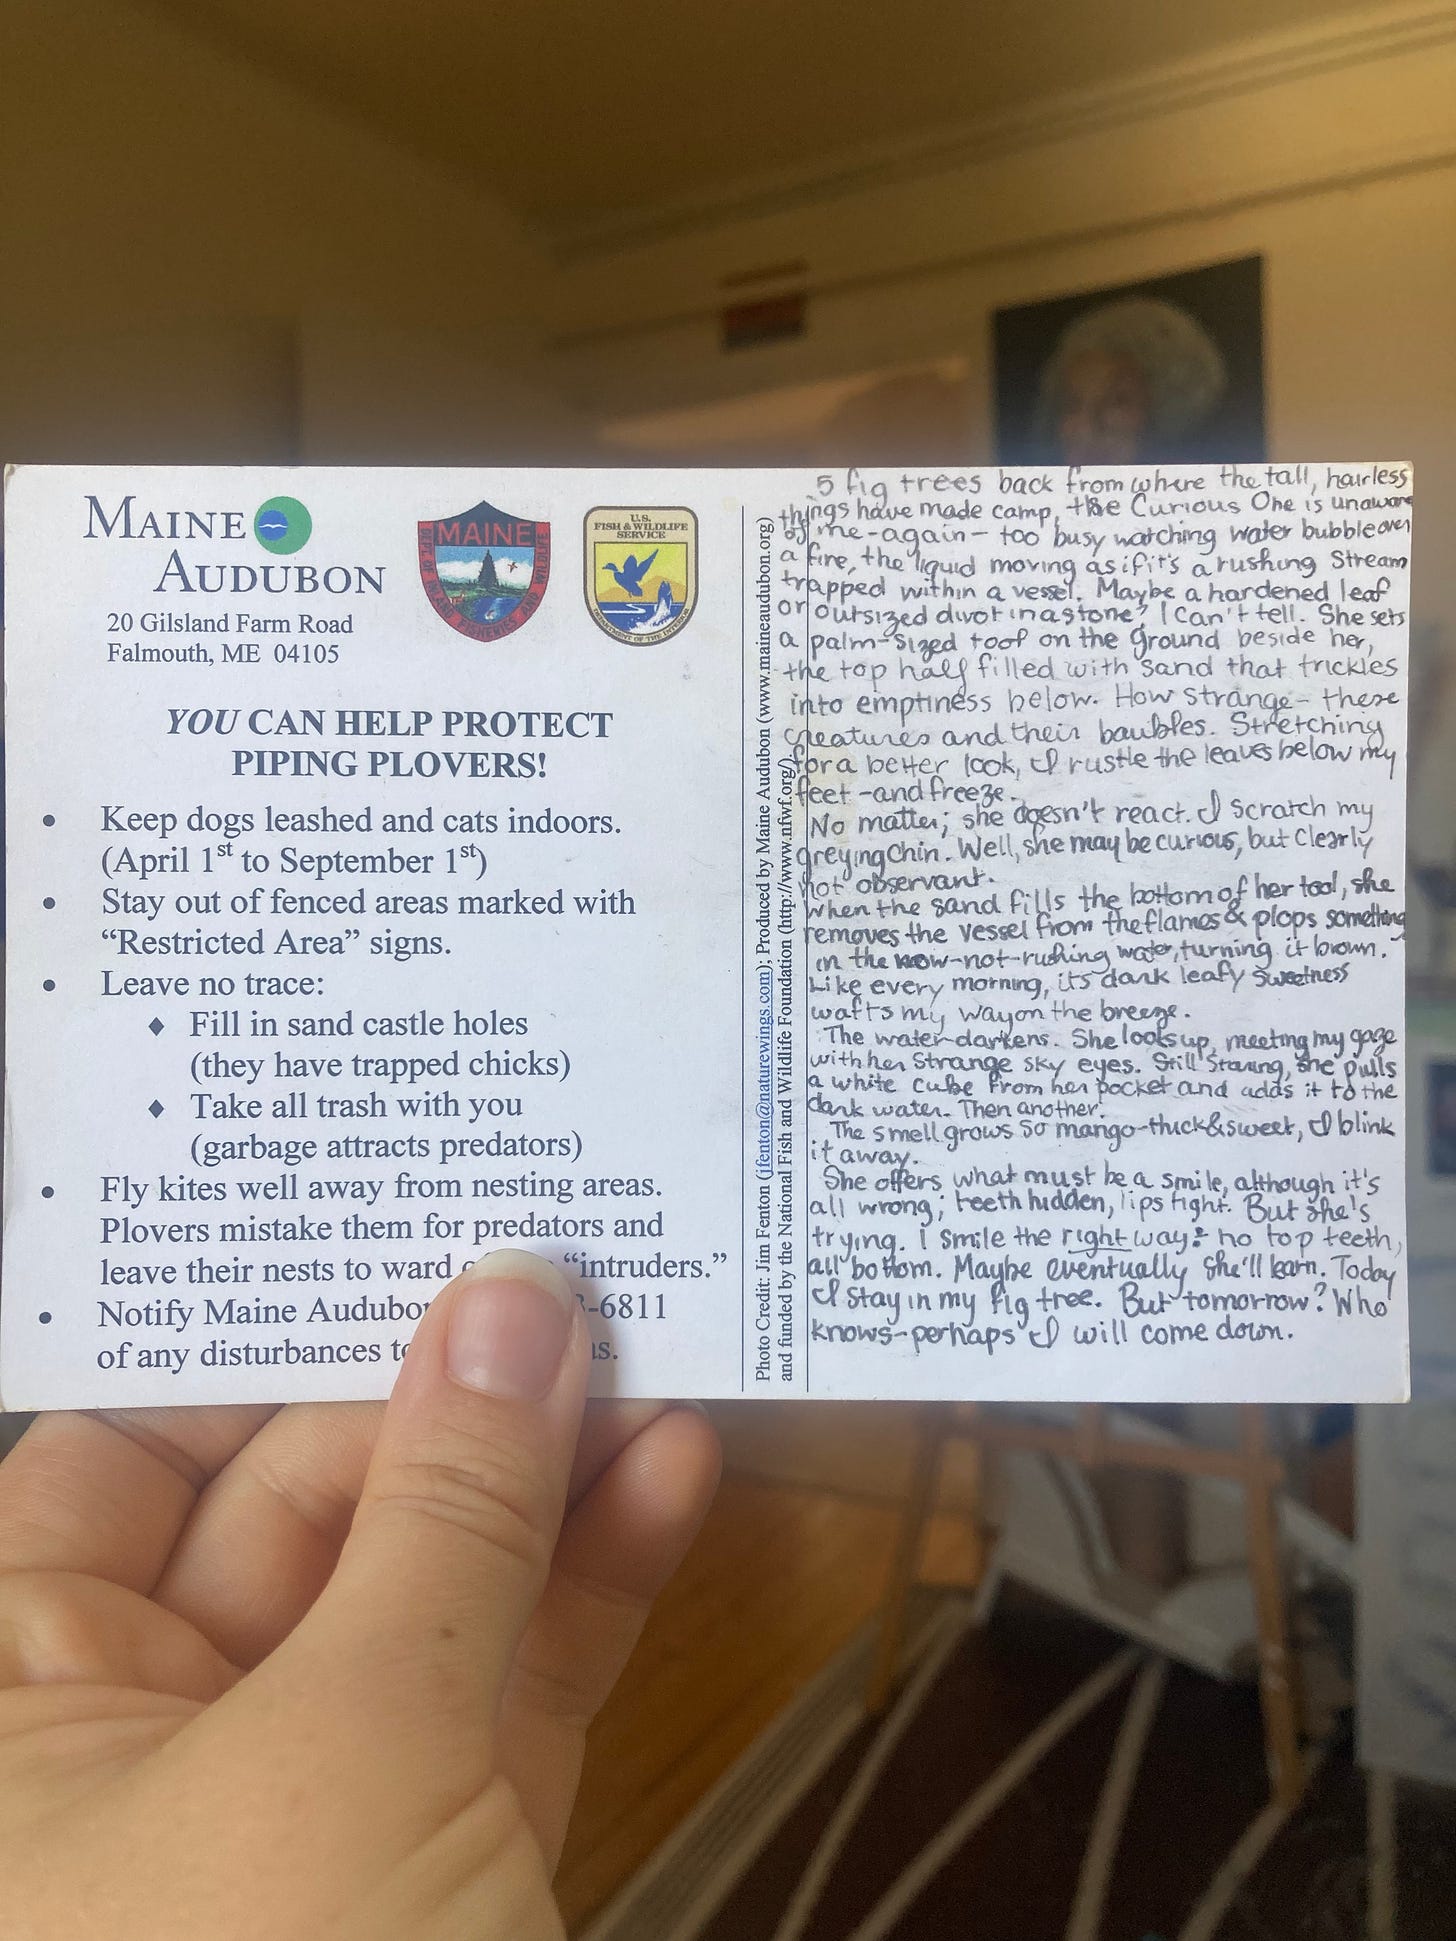 MAINE
AUDUBON
20 Gilsland Farm Road
Falmouth, ME 04105
MAINE
DEPT. OF INLAND FISHERIES AND WILDLIFE
U.S.
FISH & WILDLIFE
SERVICE
DEPARTMENT OF THE INTERIOR
YOU CAN HELP PROTECT
PIPING PLOVERS!
• Keep dogs leashed and cats indoors.
(April 1st to September 1st)
• Stay out of fenced areas marked with
“Restricted Area” signs.
• Leave no trace:
♦ Fill in sand castle holes
(they have trapped chicks)
♦ Take all trash with you
(garbage attracts predators)
• Fly kites well away from nesting areas.
Plovers mistake them for predators and
leave their nests to ward “intruders.”
• Notify Maine Audubon -6811
of any disturbances
Photo Credit: Jim Fenton (jfenton@naturewings.com); Produced by Maine Audubon (www.maineaudubon.org)
and funded by the National Fish and Wildlife Foundation (http://www.nfwf.org/).
5 fig trees back from where the tall, hairless
things have made camp, the Curious One is unaware
of me-again- too busy watching water bubble over
a fire, the liquid moving as if it's a rushing Stream
trapped within a vessel. Maybe a hardened leaf
or oursized divot in a stone? I can't tell. She sets
a palm-sized tool on the ground beside her,
the top half filled with sand that trickles
into emptiness below. How strange- these
creatures and their baubles. Stretching
for a better look, I rustle the leaves below my
feet -and freeze.
No matter; she doesn't react. I scratch my
greying chin. Well, she may be curious, but clearly
not observant.
When the sand fills the bottom of her tool, she
removes the vessel from the flames & plops something
in the now-not-rushing water, turning it brown.
Like every morning, its dark leafy sweetness
wafts my way on the breeze.
The water darkens. She looks up, meeting my gaze
with her strange sky eyes. Still staring, she pulls
a white cube from her pocket and adds it to the
dark water. Then another.
The smell grows so mango-thick & sweet, I blink
it away.
She offers what must be a smile, although it's
all wrong; teeth hidden, lips tight. But she's
trying. I smile the right way: no top teeth,
all bottom. Maybe eventually she'll learn. Today
I stay in my fig tree. But tomorrow? Who
knows-perhaps I will come down.